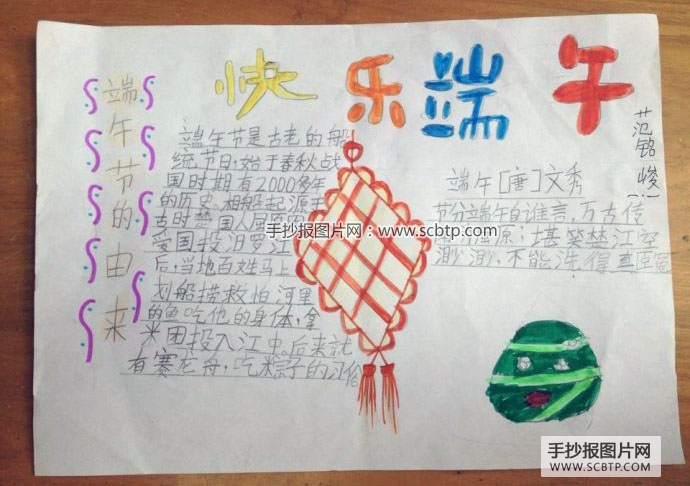 快乐端午
范铭峻
端午节的由来
端午节是古老的船
统节日，始于春秋战
国时期有2000多年
的历史。相船起源于
爱国投汨罗江
后，当地百姓马上
划船捞救怕河里
的鱼吃他的身体，拿
米团投入江中。后来就
有赛龙舟，吃粽子的
端午[唐]文秀
节分端午自谁言，万古传
屈原；堪笑楚江空
渺渺，不能洗得
手抄报图片网：www.scbtp.com
手抄报图片网
WWW.SCBTP.COM